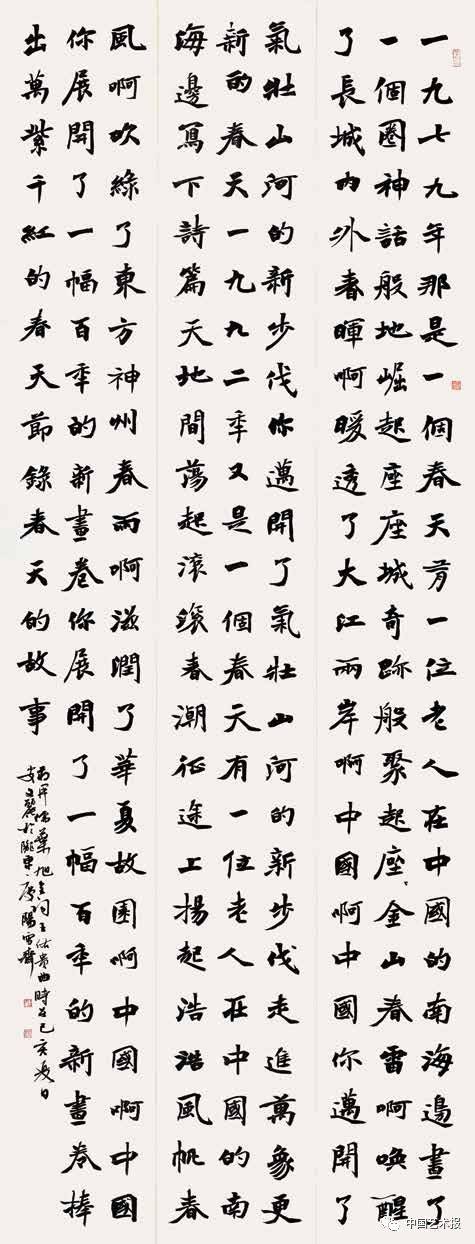 一九七九年那是一個春天有一位老人在中國的南海邊畫了
一個圈神話般地崛起座座城奇跡般聚起座、金山春雷啊喚醒
了長城內外春暉啊暖透了大江兩岸啊中國啊中國你邁開了
氣壯山河的新步伐你邁開了氣壯山河的新步伐走進萬象更
新的春天一九九二年又是一個春天有一位老人在中國的南
海邊寫下詩篇天地間蕩起滾滾春潮征途上揚起浩浩風帆春
風啊吹綠了東方神州春雨啊滋潤了華夏故園啊中國啊中國
你展開了一幅百年的新畫卷你展開了一幅百年的新畫卷捧
出萬紫千紅的春天節錄春天的故事
葉旭全詞王佑貴曲時在己亥夏日
中国艺术报